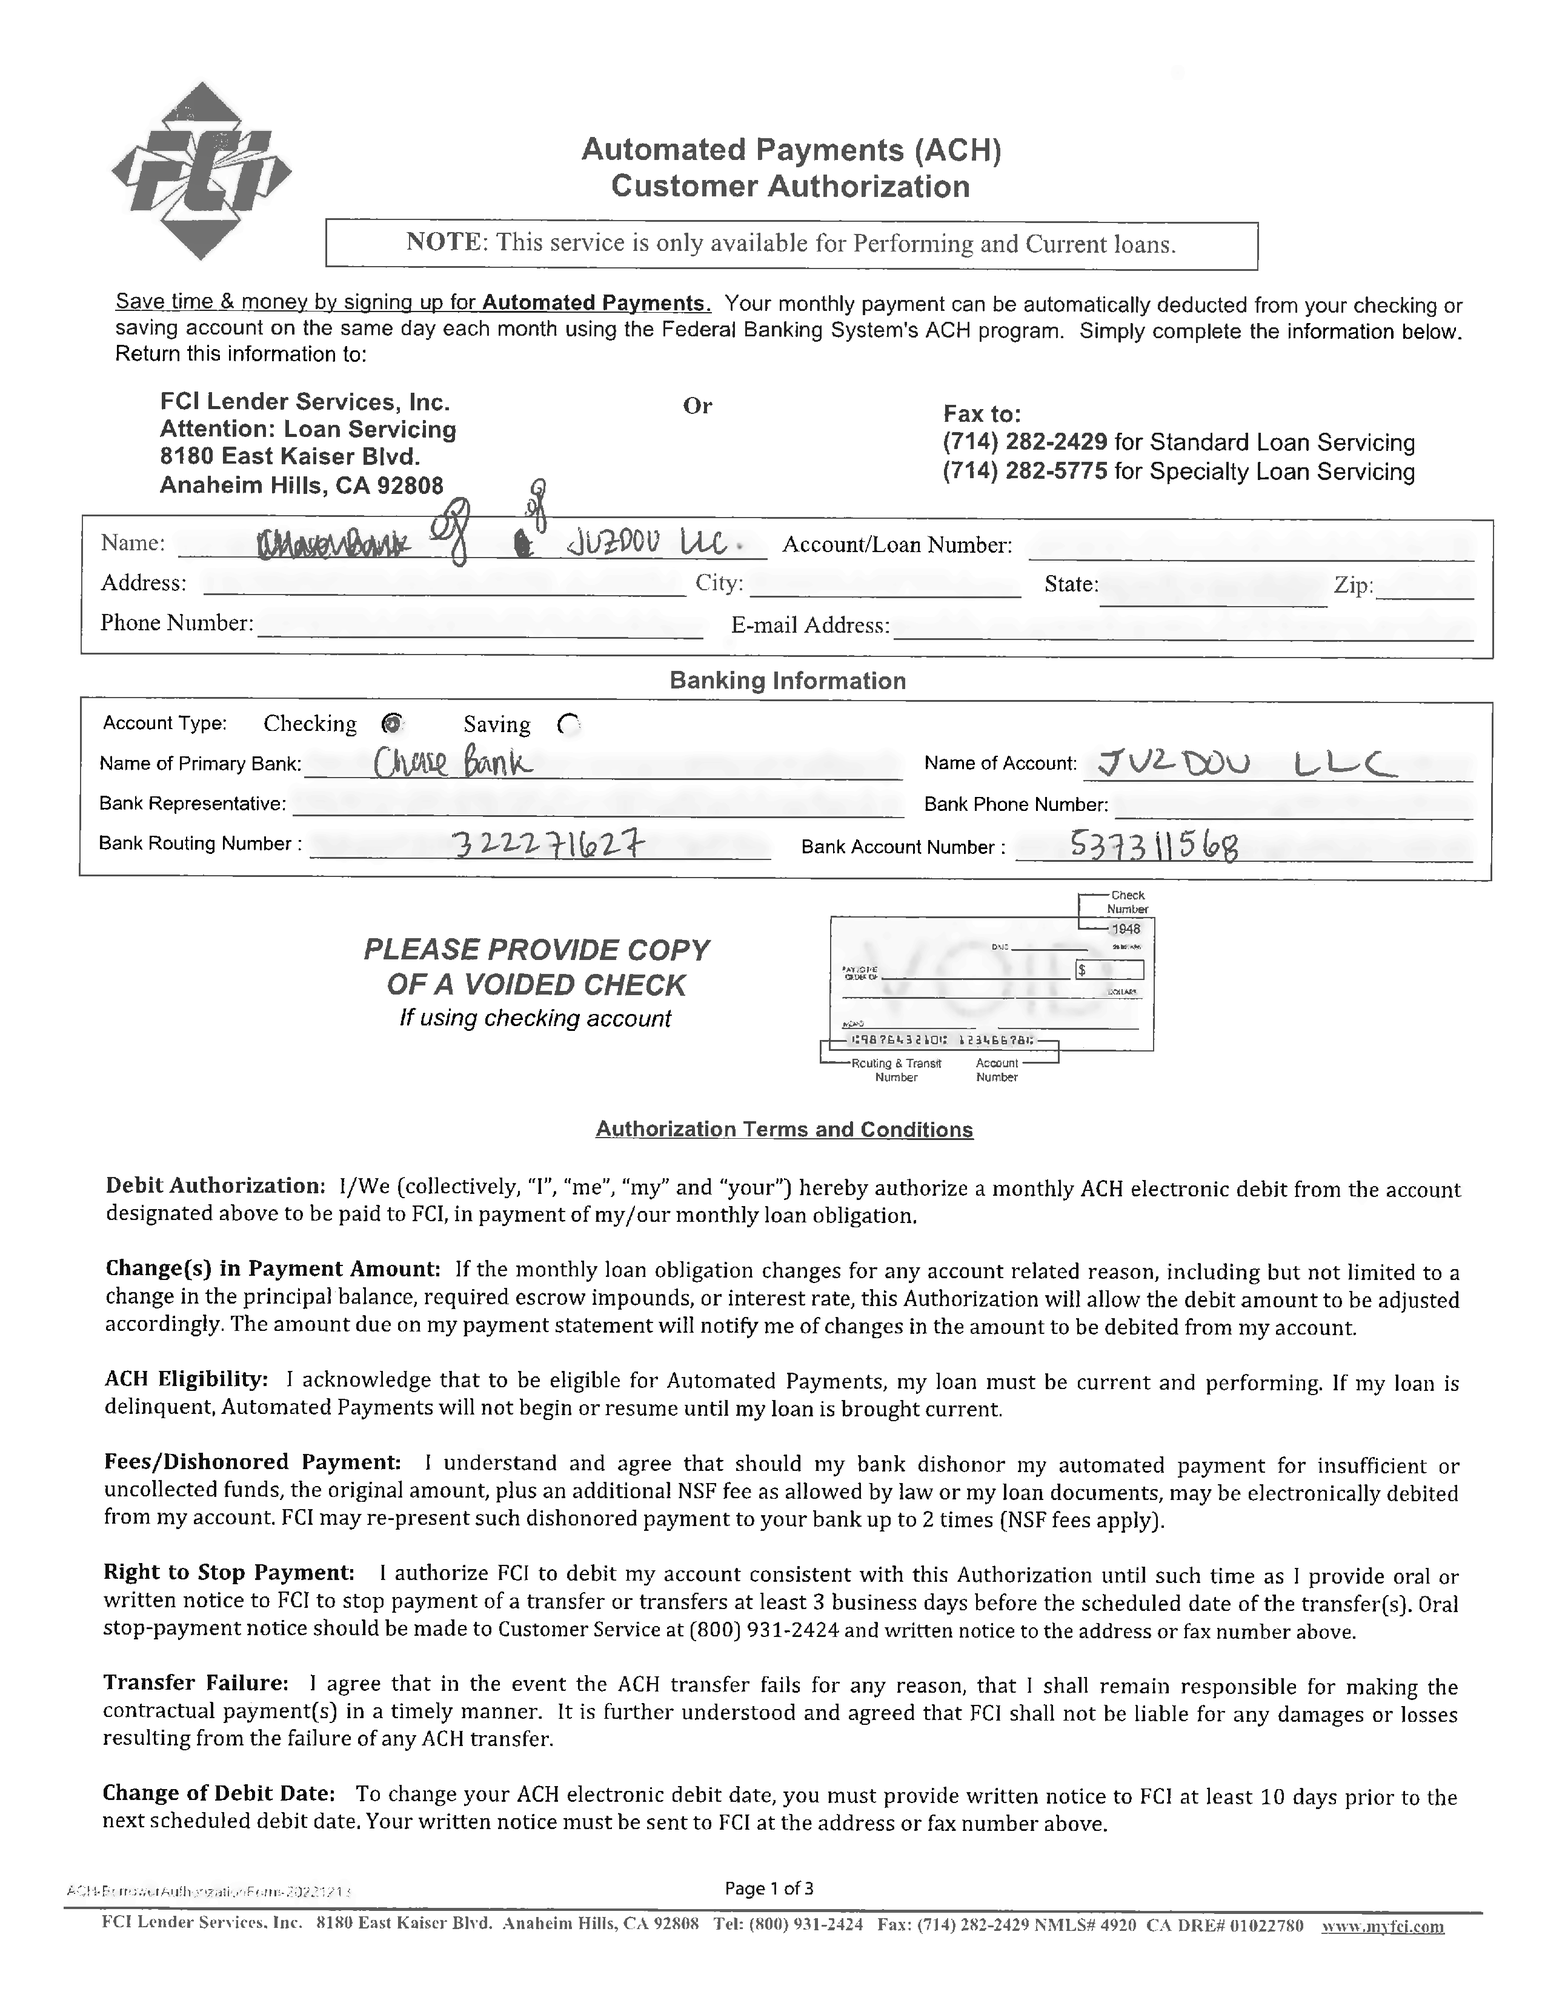 FCI
Automated Payments (ACH)
Customer Authorization
NOTE: This service is only available for Performing and Current loans.
Save time & money by signing up for Automated Payments. Your monthly payment can be automatically deducted from your checking or
saving account on the same day each month using the Federal Banking System's ACH program. Simply complete the information below.
Return this information to:
FCI Lender Services, Inc.
Attention: Loan Servicing
8180 East Kaiser Blvd.
Anaheim Hills, CA 92808
Or
Fax to:
(714) 282-2429 for Standard Loan Servicing
(714) 282-5775 for Specialty Loan Servicing
Name: Chase Bank JUZDOU LLC. Account/Loan Number:
Address: City: State: Zip:
Phone Number: E-mail Address:
Banking Information
Account Type: Checking Saving
Name of Primary Bank: Chase Bank Name of Account: JUZDOU LLC
Bank Representative: Bank Phone Number:
Bank Routing Number : 322271627 Bank Account Number : 537311568
PLEASE PROVIDE COPY
OF A VOIDED CHECK
If using checking account
Check
Number
1948
VOID
DATE
PAY TO THE
ORDER OF
$
DOLLARS
MEMO
Routing & Transit
Number
Account
Number
Authorization Terms and Conditions
Debit Authorization: I/We (collectively, “I”, “me”, “my” and “your”) hereby authorize a monthly ACH electronic debit from the account
designated above to be paid to FCI, in payment of my/our monthly loan obligation.
Change(s) in Payment Amount: If the monthly loan obligation changes for any account related reason, including but not limited to a
change in the principal balance, required escrow impounds, or interest rate, this Authorization will allow the debit amount to be adjusted
accordingly. The amount due on my payment statement will notify me of changes in the amount to be debited from my account.
ACH Eligibility: I acknowledge that to be eligible for Automated Payments, my loan must be current and performing. If my loan is
delinquent, Automated Payments will not begin or resume until my loan is brought current.
Fees/Dishonored Payment: I understand and agree that should my bank dishonor my automated payment for insufficient or
uncollected funds, the original amount, plus an additional NSF fee as allowed by law or my loan documents, may be electronically debited
from my account. FCI may re-present such dishonored payment to your bank up to 2 times (NSF fees apply).
Right to Stop Payment: I authorize FCI to debit my account consistent with this Authorization until such time as I provide oral or
written notice to FCI to stop payment of a transfer or transfers at least 3 business days before the scheduled date of the transfer(s). Oral
stop-payment notice should be made to Customer Service at (800) 931-2424 and written notice to the address or fax number above.
Transfer Failure: I agree that in the event the ACH transfer fails for any reason, that I shall remain responsible for making the
contractual payment(s) in a timely manner. It is further understood and agreed that FCI shall not be liable for any damages or losses
resulting from the failure of any ACH transfer.
Change of Debit Date: To change your ACH electronic debit date, you must provide written notice to FCI at least 10 days prior to the
next scheduled debit date. Your written notice must be sent to FCI at the address or fax number above.
Page 1 of 3
FCI Lender Services, Inc. 8180 East Kaiser Blvd. Anaheim Hills, CA 92808 Tel: (800) 931-2424 Fax: (714) 282-2429 NMLS# 4920 CA DRE# 01022780 www.myfci.com